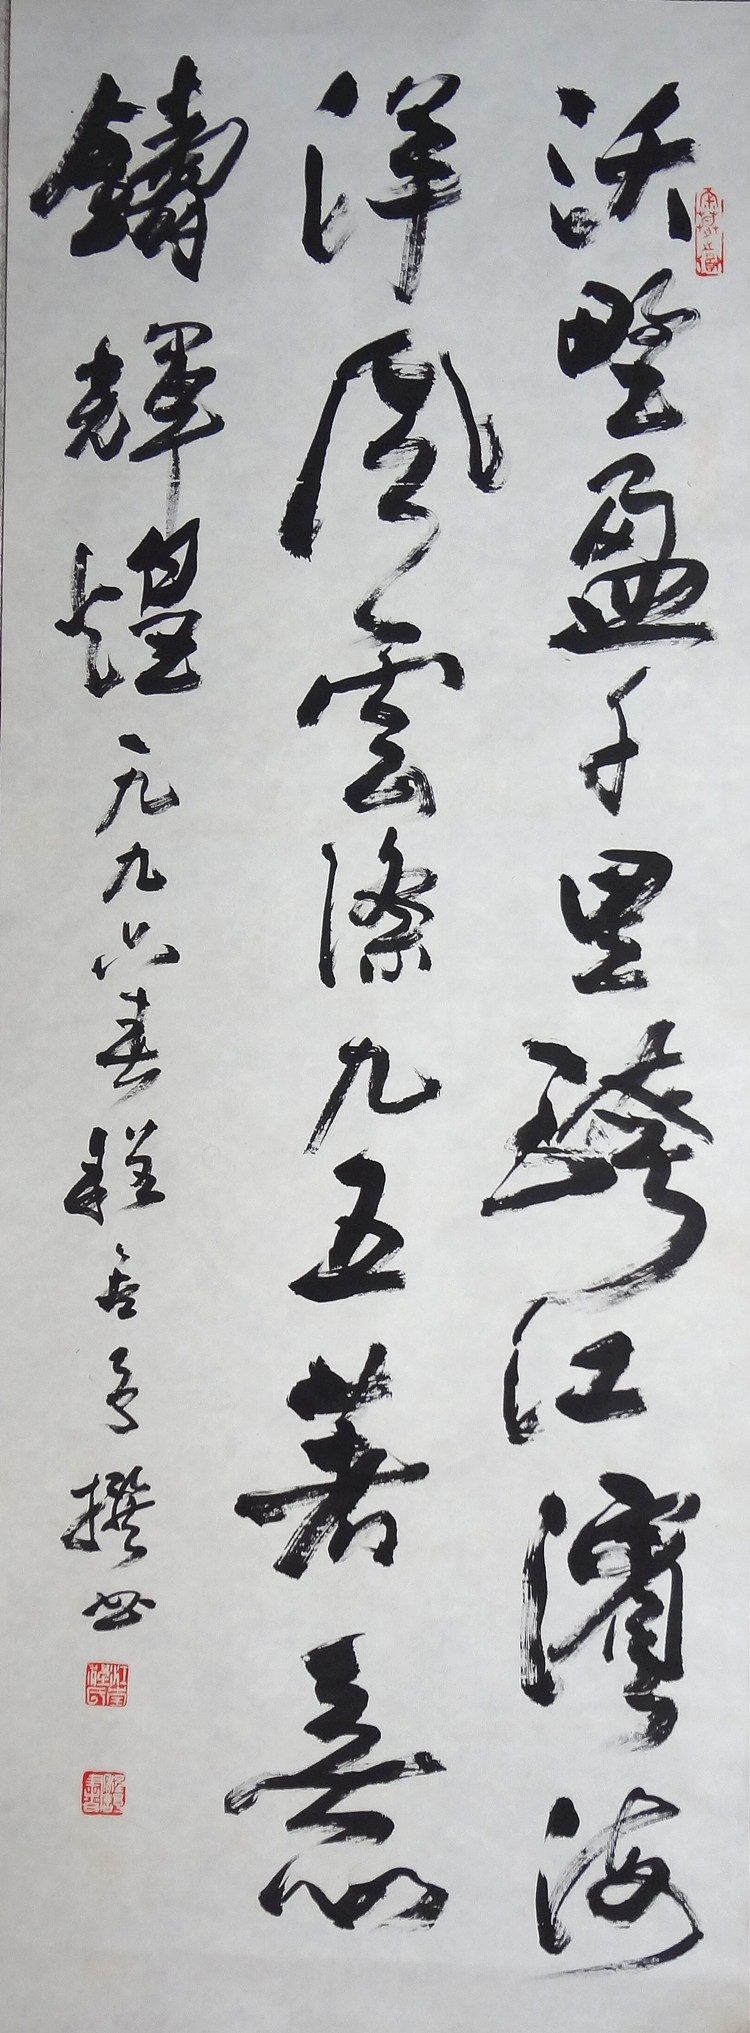 沃野盈千里跨江濱海
洋風雲際九五著意
鑄輝煌 一九九六春程撰書